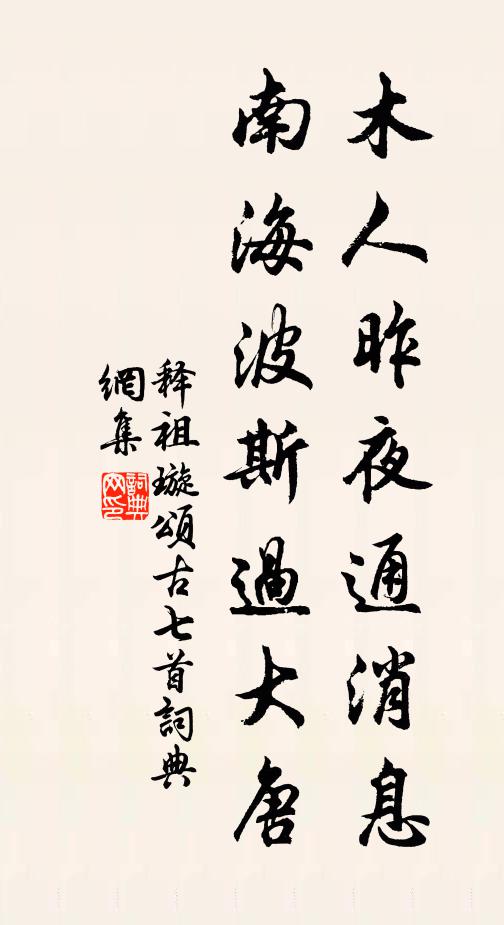 木人昨夜通消息
南海波斯過大唐
释祖璇頌古七首詞典
網集
詞典网印